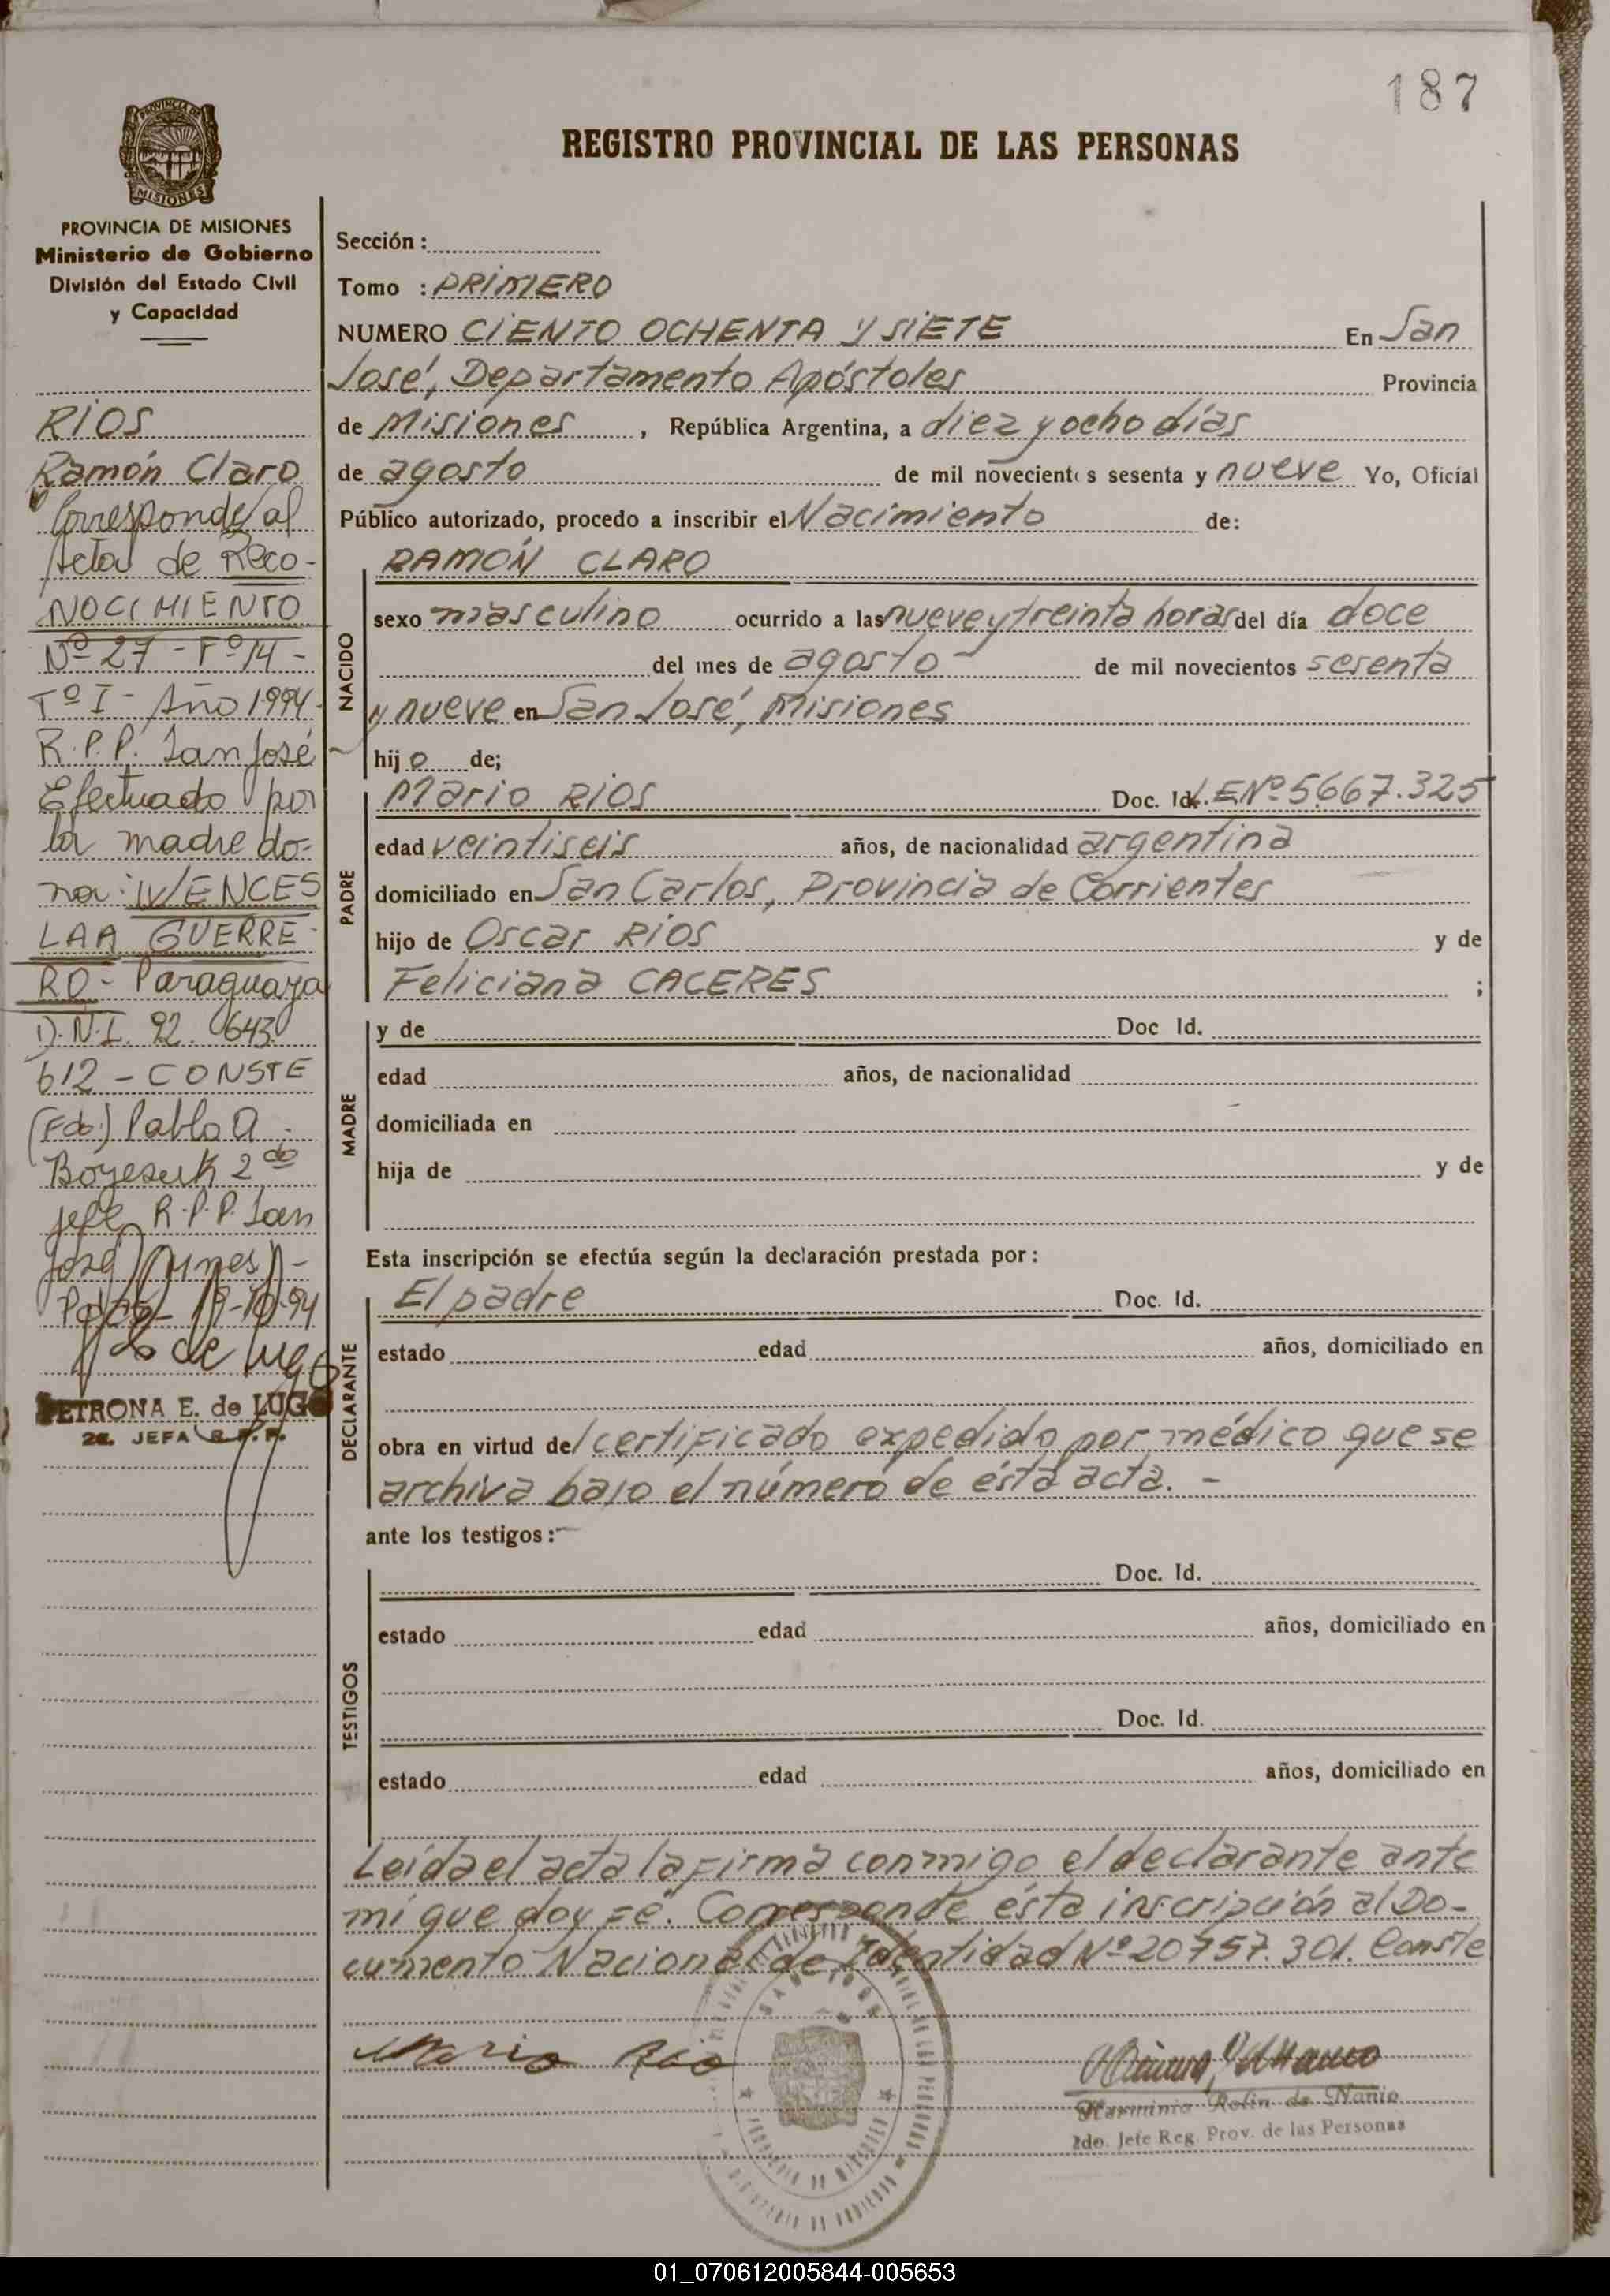 187
MISIONES
REGISTRO PROVINCIAL DE LAS PERSONAS
PROVINCIA DE MISIONES
Ministerio de Gobierno
División del Estado Civil
y Capacidad
RIOS
Ramón Claro
Corresponde al
Acta de Reco-
NOCIMIENTO
Nº 27 - Fº 14 -
Tº I - Año 1994.
R.P.P. San José
Efectuado por
la madre do-
na: WENCES
LAA GUERRE
RO - Paraguaya
D.N.I. 92. 643
612 - CONSTE
(Fdo.) Pablo A.
Boyesuk 2do
jefe R.P.P. San
José
19-10-94
PETRONA E. de LUGO
2a. JEFA R.P.P.
Sección :
Tomo : PRIMERO
NUMERO CIENTO OCHENTA Y SIETE En San
José, Departamento Apóstoles Provincia
de Misiones , República Argentina, a diez y ocho días
de agosto de mil novecientos sesenta y nueve Yo, Oficial
Público autorizado, procedo a inscribir el Nacimiento de:
NACIDO
RAMÓN CLARO
sexo masculino ocurrido a las nueve y treinta horas del día doce
del mes de agosto - de mil novecientos sesenta
y nueve en San José, Misiones
hijo de;
PADRE
Mario RIOS Doc. Id. L.E Nº 5.667.325
edad veintiseis años, de nacionalidad argentina
domiciliado en San Carlos, Provincia de Corrientes
hijo de Oscar RIOS y de
Feliciana CACERES ;
MADRE
y de Doc Id.
edad años, de nacionalidad
domiciliada en
hija de y de
Esta inscripción se efectúa según la declaración prestada por :
DECLARANTE
El padre Doc. Id.
estado edad años, domiciliado en
obra en virtud del certificado expedido por médico que se
archiva bajo el número de ésta acta. -
ante los testigos :
TESTIGOS
Doc. Id.
estado edad años, domiciliado en
Doc. Id.
estado edad años, domiciliado en
Leída el acta la firma conmigo el declarante ante
mí que doy fé. Corresponde ésta inscripción al Do-
cumento Nacional de Identidad Nº 20757.301. Conste
Mario Rio
Herminia Rolin de Nanio
2do. Jefe Reg. Prov. de las Personas
01_070612005844-005653